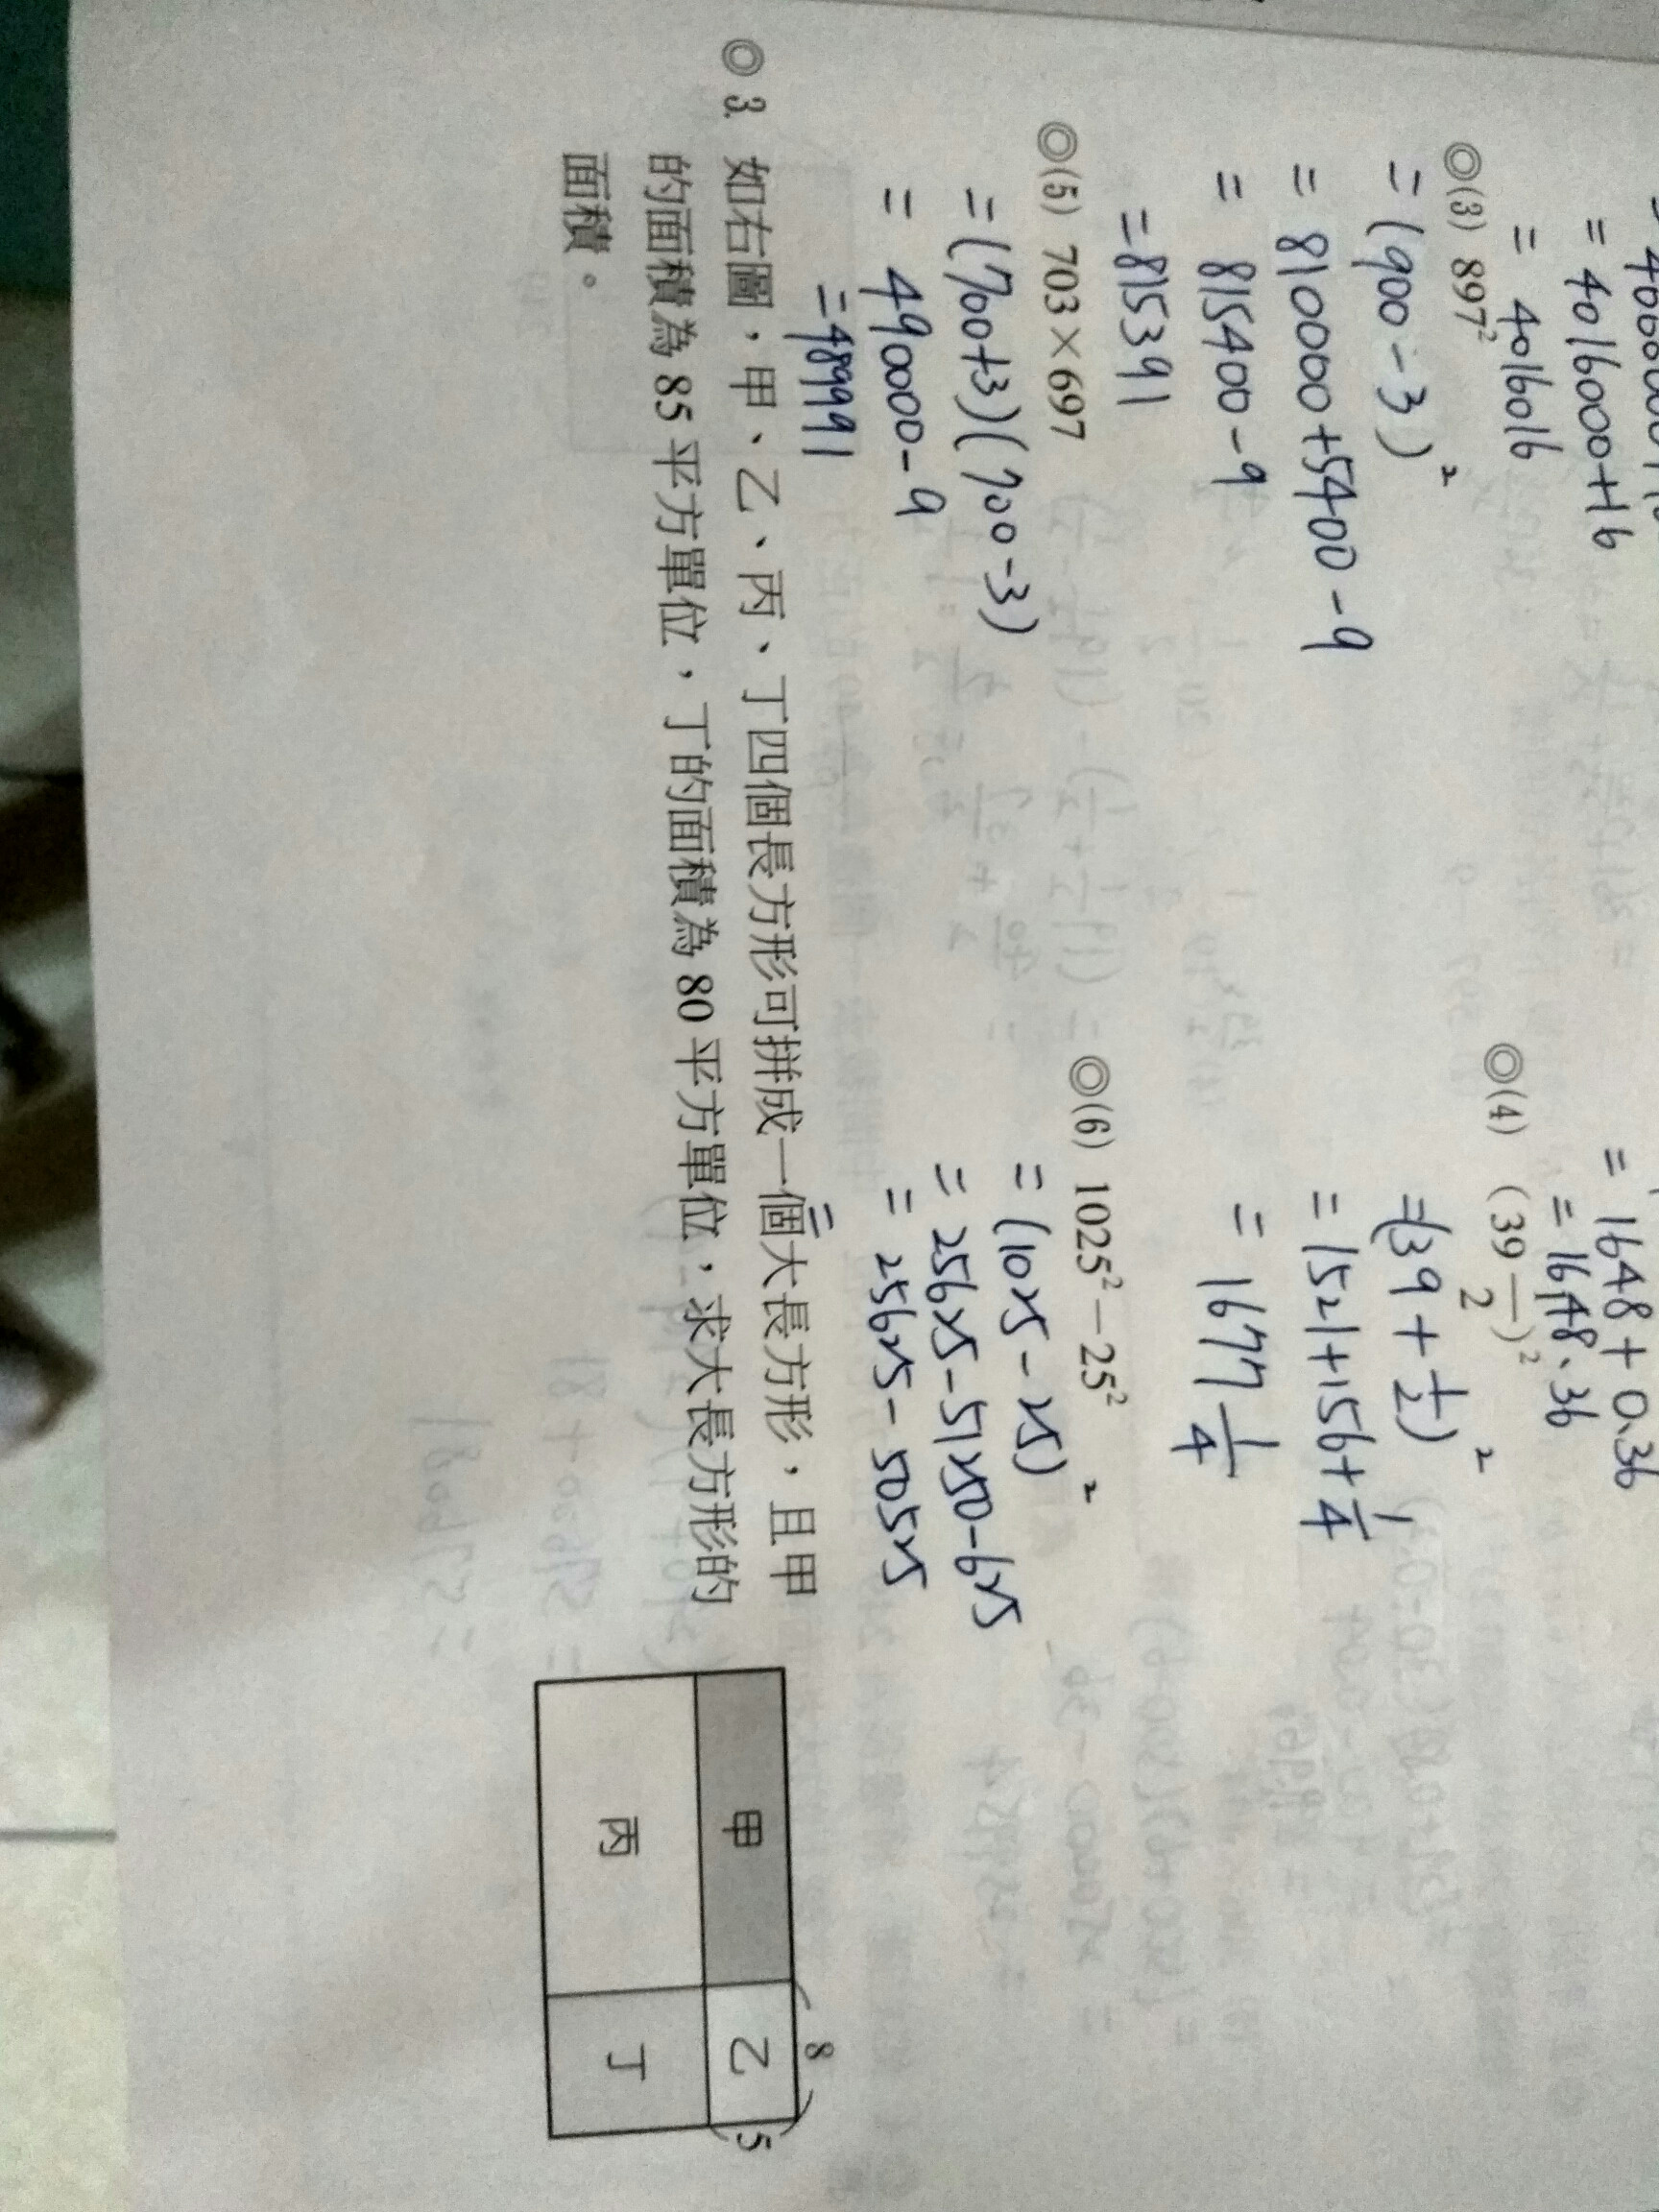 = 4016000+16
= 4016016
= 1648 + 0.36
= 1648.36
◎(3) 897²
= (900 - 3)²
= 810000+5400 - 9
= 815400 - 9
= 815391
◎(4) (39 1/2)²
= (39 + 1/2)²
= 1521+156+1/4
= 1677 1/4
◎(5) 703×697
= (700+3)(700-3)
= 490000 - 9
= 489991
◎(6) 1025²－25²
= (1025 - 25)²
= 25625 - 51250 - 625
= 25625 - 50525
=
◎ 3. 如右圖，甲、乙、丙、丁四個長方形可拼成一個大長方形，且甲
的面積為 85 平方單位，丁的面積為 80 平方單位，求大長方形的
面積。
8
甲 乙 5
丙 丁